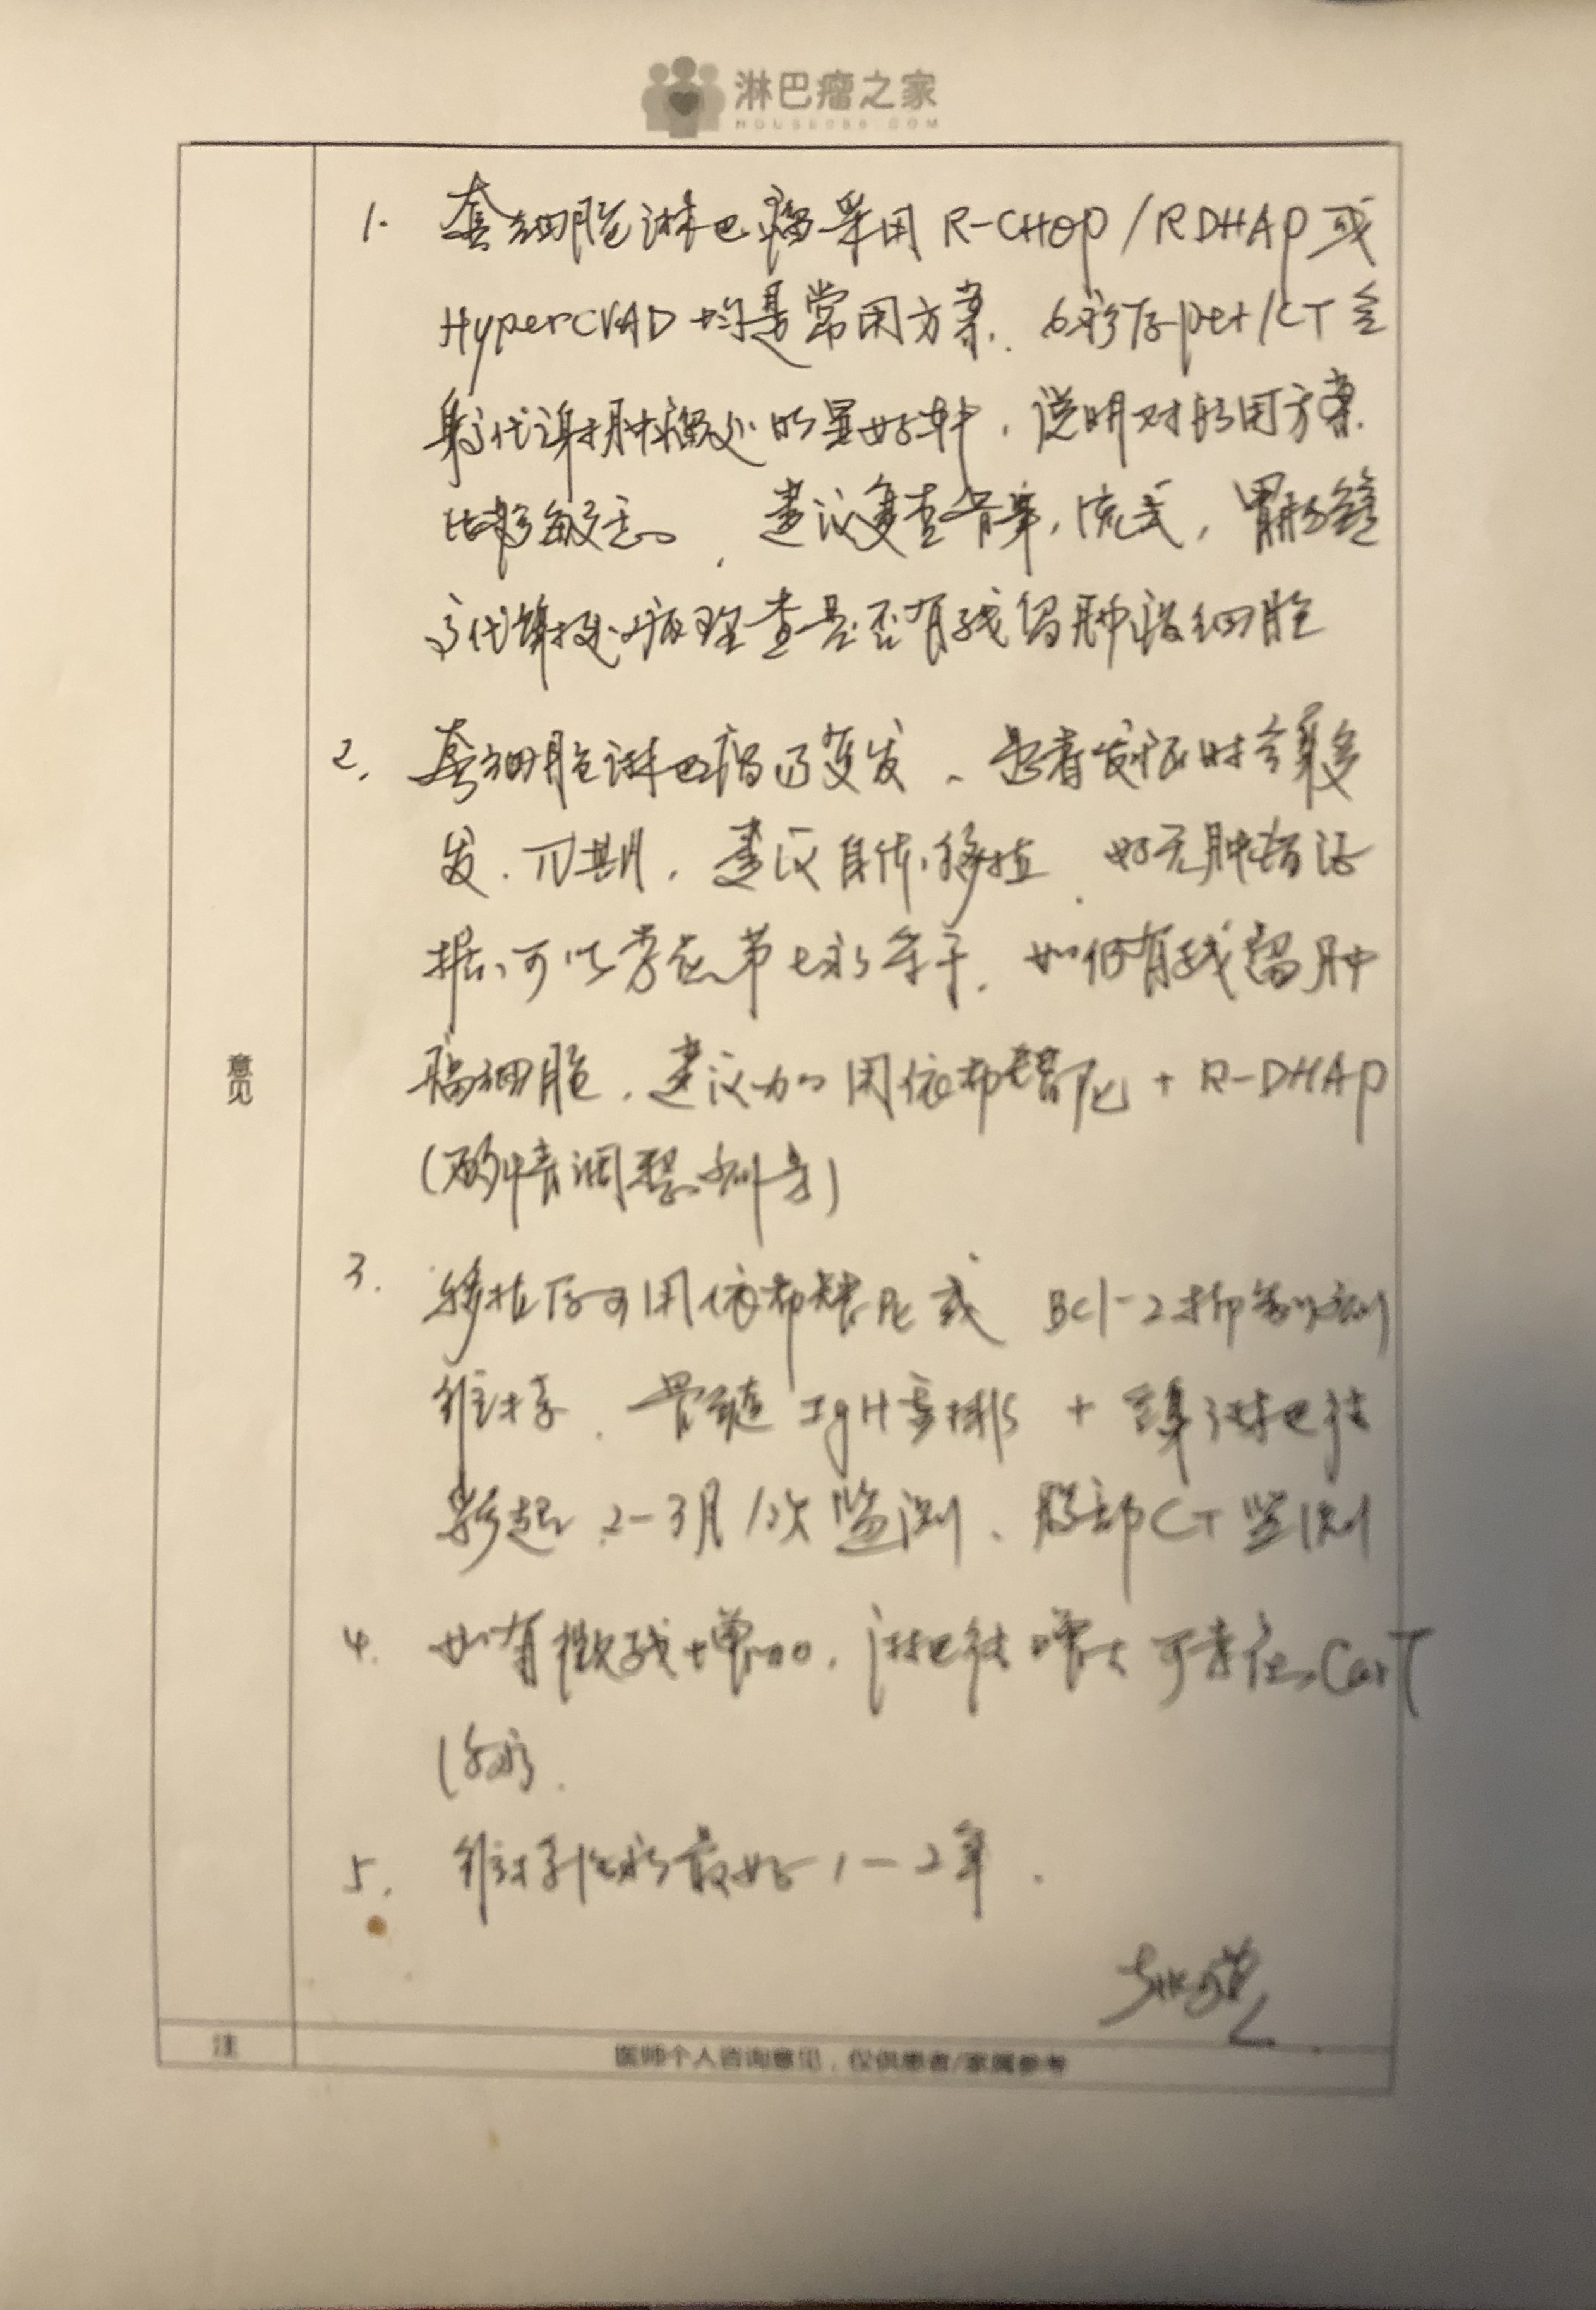 淋巴瘤之家
HOUSE086.COM
1. 套细胞淋巴瘤采用 R-CHOP/RDHAP 或
HyperCVAD 均是常用方案. 6疗后pet/CT全
身高代谢肿瘤处明显好转, 说明对所用方案
比较敏感. 建议复查骨穿, 流式, 胃肠镜
高代谢处病理查是否有残留肿瘤细胞
2. 套细胞淋巴瘤易复发、患者发病时全身多
发. IV期, 建议自体移植. 如无肿瘤证
据可以考虑第七疗若干. 如仍有残留肿
瘤细胞, 建议加用依布替尼 + R-DHAP
(酌情调整剂量)
3. 移植后可用依布替尼或 Bcl-2抑制剂
维持. 骨髓 IgH重排 + 全身淋巴结
彩超 2-3月/次监测、腹部CT监测
4. 如有微残增加, 淋巴结增大可考虑CarT
治疗.
5. 维持治疗最好1-2年.
意见
注
医师个人咨询意见，仅供患者/家属参考